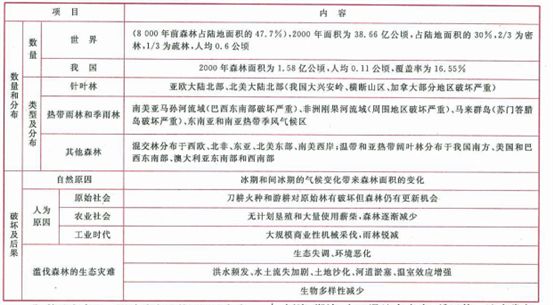 项目 内容
数量和分布
数量
世界
(8 000年前森林占陆地面积的47.7%),2000年面积为38.66亿公顷,占陆地面积的30%,2/3为密
林,1/3为疏林,人均0.6公顷
我国
2000年森林面积为1.58亿公顷,人均0.11公顷,覆盖率为16.55%
类型及分布
针叶林
亚欧大陆北部、北美大陆北部(我国大兴安岭、横断山区、加拿大部分地区破坏严重)
热带雨林和季雨林
南美亚马孙河流域(巴西东南部破坏严重)、非洲刚果河流域(周围地区破坏严重)、马来群岛(苏门答腊
岛破坏严重)、东南亚和南亚热带季风气候区
其他森林
混交林分布于西欧、北非、东亚、北美东部、南美西岸;温带和亚热带阔叶林分布于我国南方、美国和巴
西东南部、澳大利亚东南部和西南部
破坏及后果
自然原因
冰期和间冰期的气候变化带来森林面积的变化
人为
原因
原始社会
刀耕火种和游耕对原始林有破坏但森林仍有更新机会
农业社会
无计划垦殖和大量使用薪柴,森林逐渐减少
工业时代
大规模商业性机械采伐,雨林锐减
滥伐森林的生态灾难
生态失调、环境恶化
洪水频发、水土流失加剧、土地沙化、河道淤塞、温室效应增强
生物多样性减少